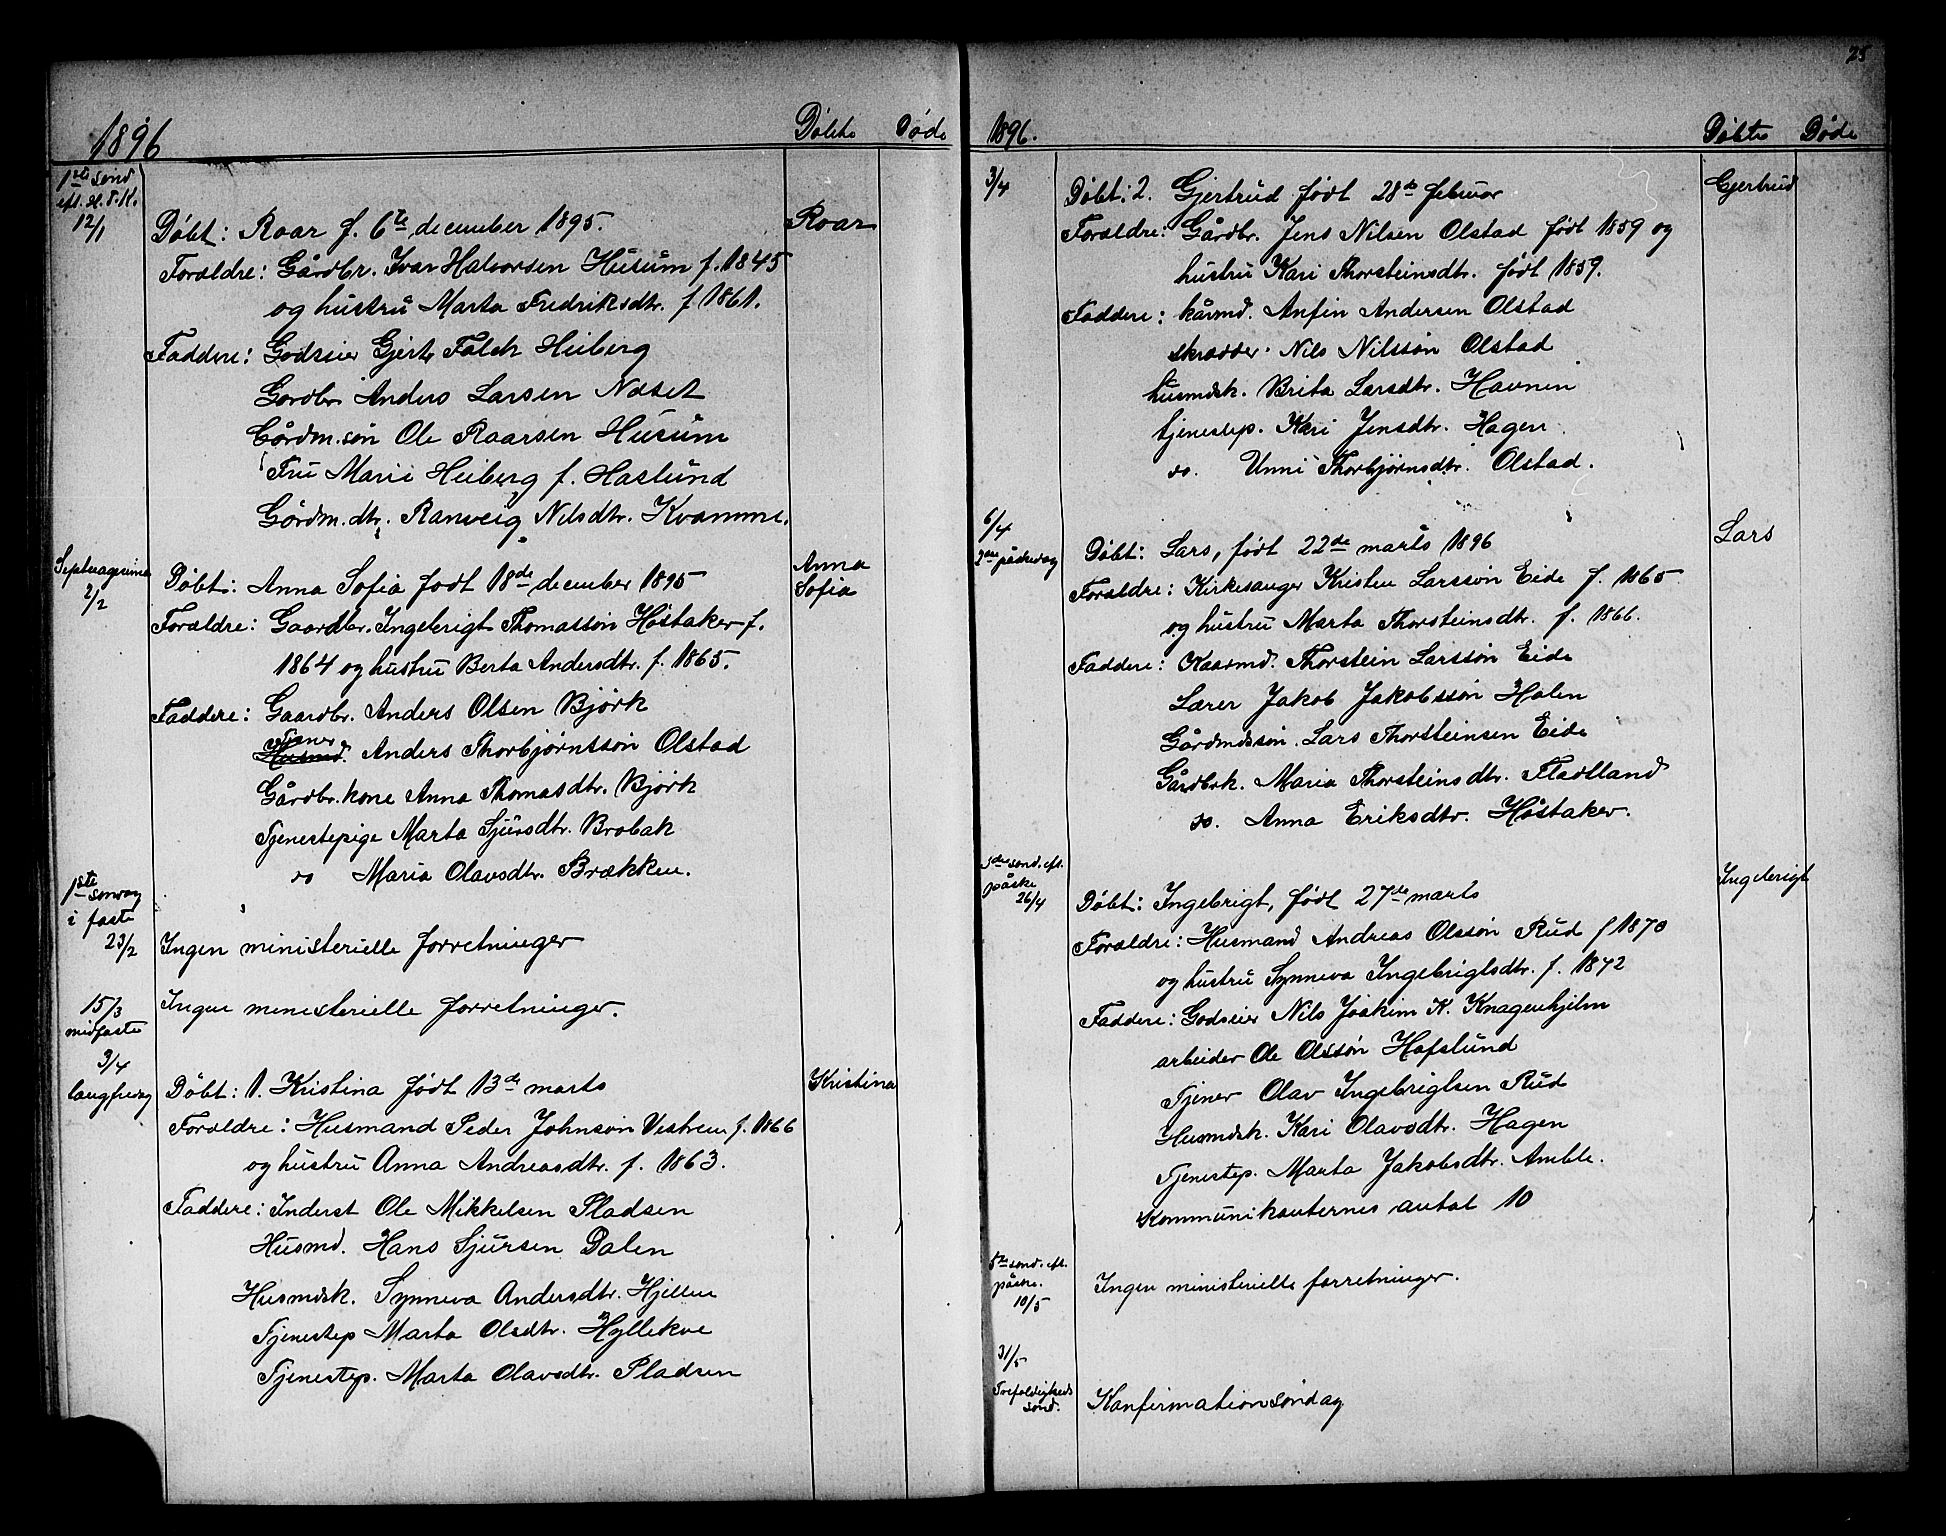 1896 Døbte Døde
1ste sønd
eft. H.3.K.
12/1
Døbt: Roar f. 6te december 1895. Roar
Forældre: Gårdbr. Ivar Halvorsen Husum f. 1845
og hustru Marta Fredriksdtr. f. 1861.
Faddere: Godseier Gjert Falch Heiberg
Gardbr Anders Larsen Næset
Gårdm.søn Ole Roarsen Husum
Fru Marie Heiberg f. Haslund
Gårdm.dtr. Ranveig Nilsdtr. Kvamme.
Septuagesima
2/2
Døbt: Anna Sofia født 18de december 1895 Anna
Sofia
Forældre: Gaardbr. Ingebrigt Thomassøn Høstaker f.
1864 og hustru Berta Andersdtr. f. 1865.
Faddere: Gaardbr. Anders Olsen Bjørk
Tjener
Husmd. Anders Thorbjørnssøn Olstad
Gårdbr.kone Anna Thomasdtr. Bjørk
Tjenestepige Marta Sjursdtr. Brobak
do Maria Olavsdtr. Brækken.
1ste søndag
i faste
23/2
Ingen ministerielle forretninger
15/3
midfaste
Ingen ministerielle forretninger.
3/4
langfredag
Døbt: 1. Kristina født 13de marts Kristina
Forældre: Husmand Peder Johnsøn Vestrem f. 1866
og hustru Anna Andreasdtr. f. 1863.
Faddere: Inderst Ole Mikkelsen Pladsen
Husmd. Hans Sjursen Dalen
Husmdsk. Synneva Andersdtr. Hjellen
Tjenestep Marta Olsdtr. Hyllekve
Tjenestep. Marta Olavsdtr. Pladsen
25
1896. Døbte Døde
3/4
Døbt: 2. Gjertrud født 28de februar Gjertrud
Forældre: Gårdbr. Jens Nilsen Olstad født 1859 og
hustru Kari Thorsteinsdtr. født 1859.
Faddere: kårmd. Anfin Andersen Olstad
skrædder. Nils Nilssøn Olstad
husmdsk. Brita Larsdtr. Havnen
tjenestep. Kari Jensdtr. Hagen
do. Unni Thorbjørnsdtr. Olstad.
6/4
2den påskedag
Døbt: Lars, født 22de marts 1896 Lars
Forældre: Kirkesanger Kristen Larssøn Eide f. 1865
og hustru Marta Thorsteinsdtr. f. 1866.
Faddere: Kaarmd. Thorstein Larssøn Eide
Lærer Jakob Jakobssøn Holen
Gårdmdssøn. Lars Thorsteinsen Eide
Gårdbrk. Maria Thorsteinsdtr. Fladtland
do. Anna Eriksdtr. Høstaker.
3die sønd. eft.
påske
26/4
Døbt: Ingebrigt, født 27de marts Ingebrigt
Forældre: Husmand Andreas Olssøn Rud f 1870
og hustru Synneva Ingebrigtsdtr. f. 1872
Faddere: Godseier Nils Joakim K. Knagenhjelm
arbeider Ole Olssøn Hafslund
Tjener Olav Ingebrigtsen Rud
Husmdsk. Kari Olavsdtr. Hagen
Tjenestep. Marta Jakobsdtr. Amble.
Kommunikanternes antal 10
5te sønd. eft.
påske.
10/5
Ingen ministerielle forretninger.
31/5
Trefoldigheds
sønd.
Konfirmationsøndag